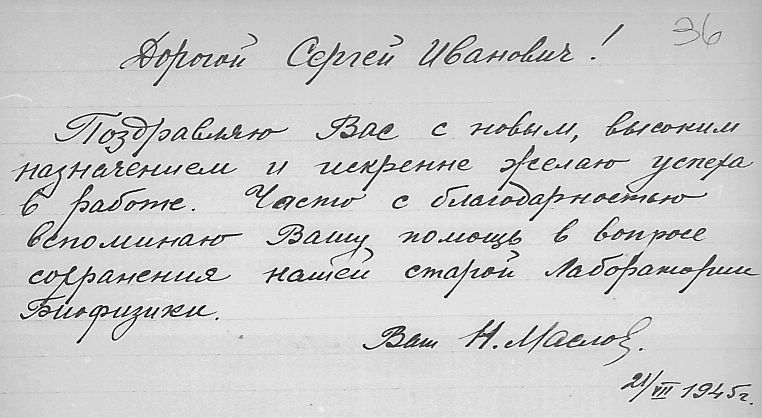 36
Дорогой Сергей Иванович!
Поздравляю Вас с новым, высоким
назначением и искренне желаю успеха
в работе. Часто с благодарностью
вспоминаю Вашу помощь в вопросе
сохранения нашей старой Лаборатории
Биофизики.
Ваш Н. Маслов.
21/VII 1945г.